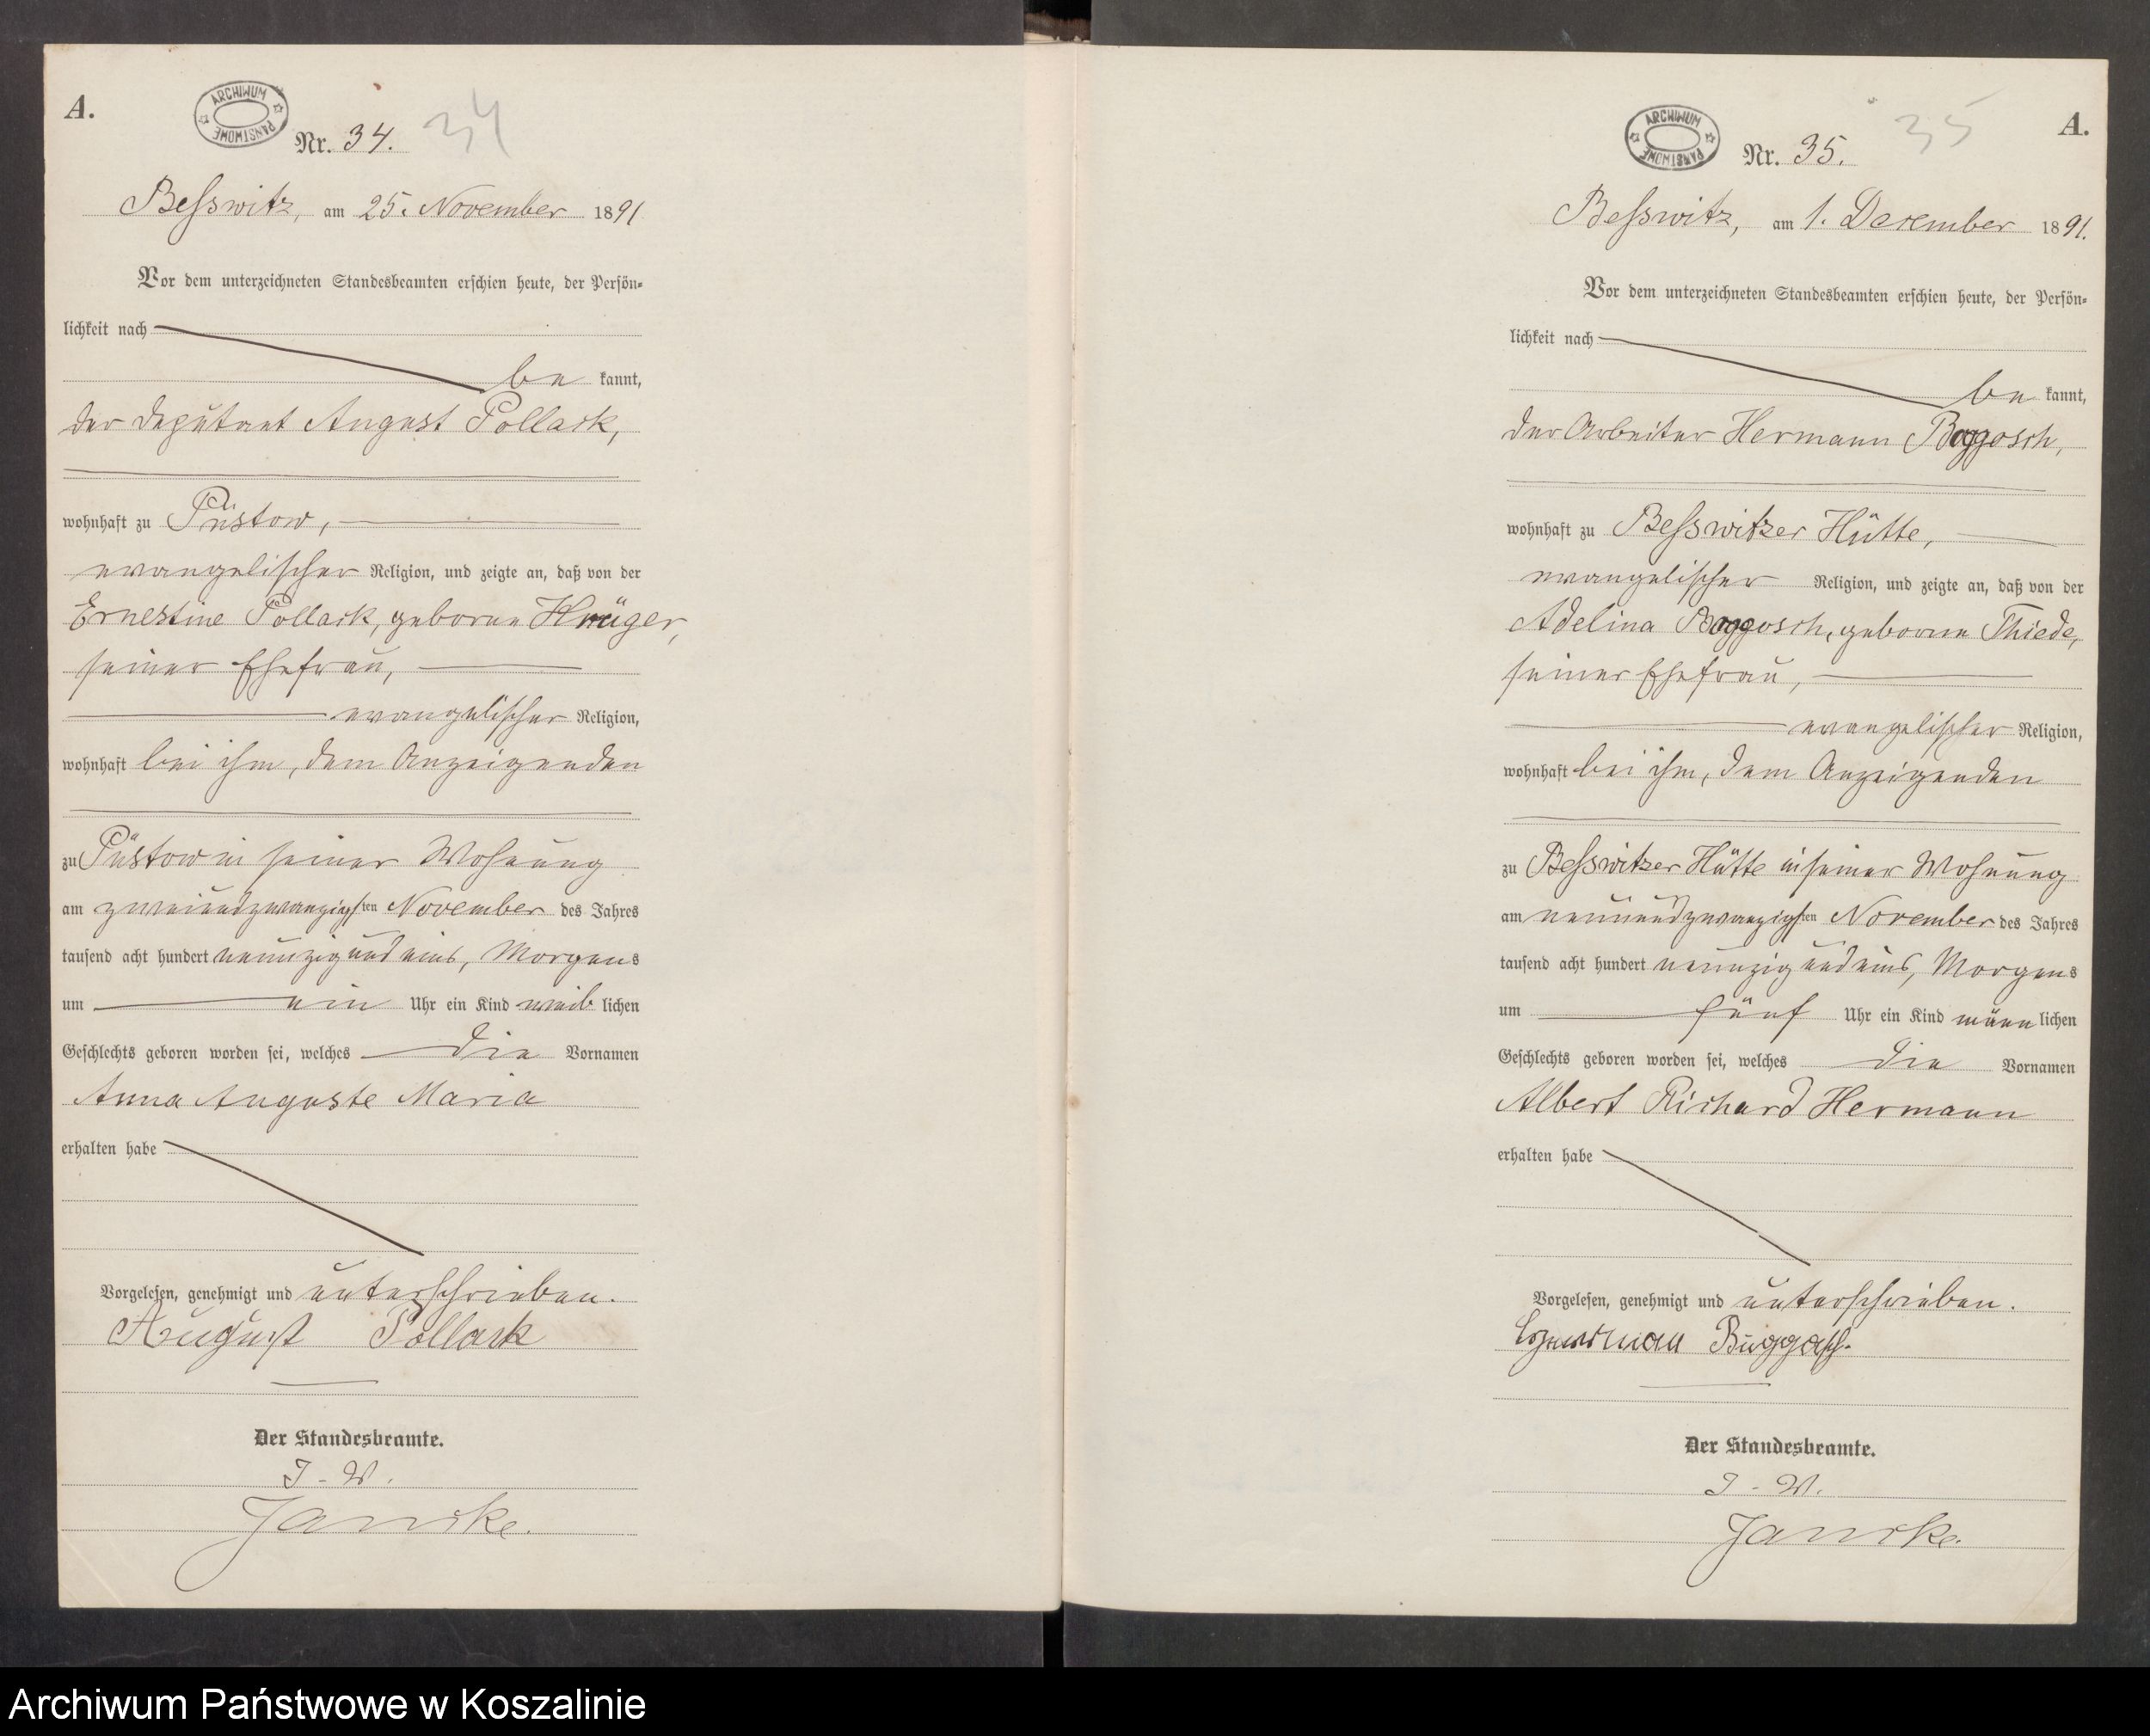 A.
ARCHIWUM PAŃSTWOWE
Nr. 34. 34
Beſswitz, am 25. November 1891
Vor dem unterzeichneten Standesbeamten erſchien heute, der Perſön-
lichkeit nach
be kannt,
der Deputant August Pollack,
wohnhaft zu Püstow,
evangeliſcher Religion, und zeigte an, daß von der
Ernestine Pollack, geborne Krüger,
ſeiner Ehefrau,
evangeliſcher Religion,
wohnhaft bei ihm, dem Anzeigenden
zu Püstow in ſeiner Wohnung
am zweiundzwanzigſten November des Jahres
tauſend acht hundert neunzig und eins, Morgens
um ein Uhr ein Kind weib lichen
Geſchlechts geboren worden ſei, welches die Vornamen
Anna Auguste Maria
erhalten habe
Vorgeleſen, genehmigt und unterſchrieben.
August Pollack
Der Standesbeamte.
J. V.
Jancke.
A.
ARCHIWUM PAŃSTWOWE
Nr. 35. 35
Beſswitz, am 1. Dezember 1891.
Vor dem unterzeichneten Standesbeamten erſchien heute, der Perſön-
lichkeit nach
be kannt,
der Arbeiter Hermann
wohnhaft zu Beſswitzer Hütte,
evangeliſcher Religion, und zeigte an, daß von der
Adelina geborne Thiede,
ſeiner Ehefrau,
evangeliſcher Religion,
wohnhaft bei ihm, dem Anzeigenden
zu Beſswitzer Hütte in ſeiner Wohnung
am neunundzwanzigſten November des Jahres
tauſend acht hundert neunzig und eins, Morgens
um fünf Uhr ein Kind männ lichen
Geſchlechts geboren worden ſei, welches die Vornamen
Albert Richard Hermann
erhalten habe
Vorgeleſen, genehmigt und unterſchrieben.
Buggoſch.
Der Standesbeamte.
J. V.
Jancke.
Archiwum Państwowe w Koszalinie